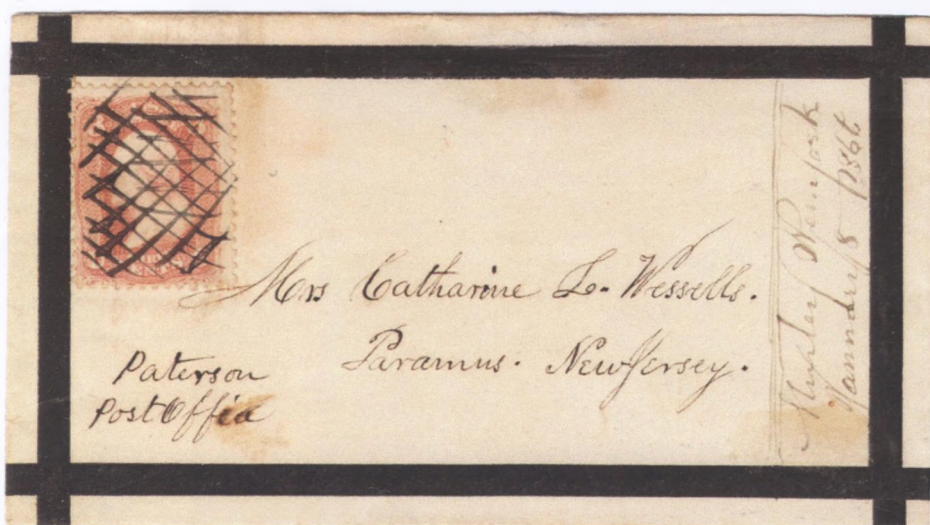 Mrs Catharine L. Wessells.
Paramus. New Jersey.
Paterson
Post Office
New york
January 8